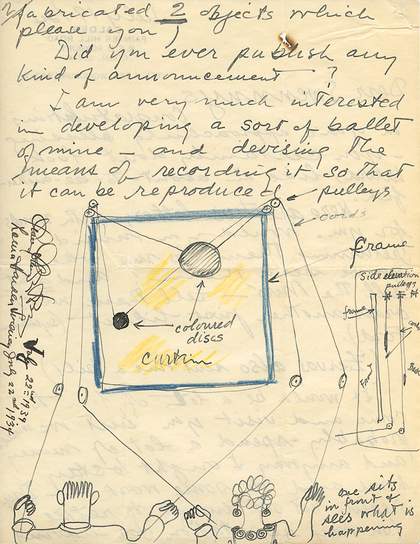 fabricated 2 objects which
please you)
Did you ever publish any
kind of announcement - ?
I am very much interested
in developing a sort of ballet
of mine - and devising the
means of recording it so that
it can be reproduced
pulleys
cords
frame
side elevation
pulleys
frame
coloured
discs
curtain
Frame
22nd 1934
22nd 1934
one sits
in front &
sees what is
happening